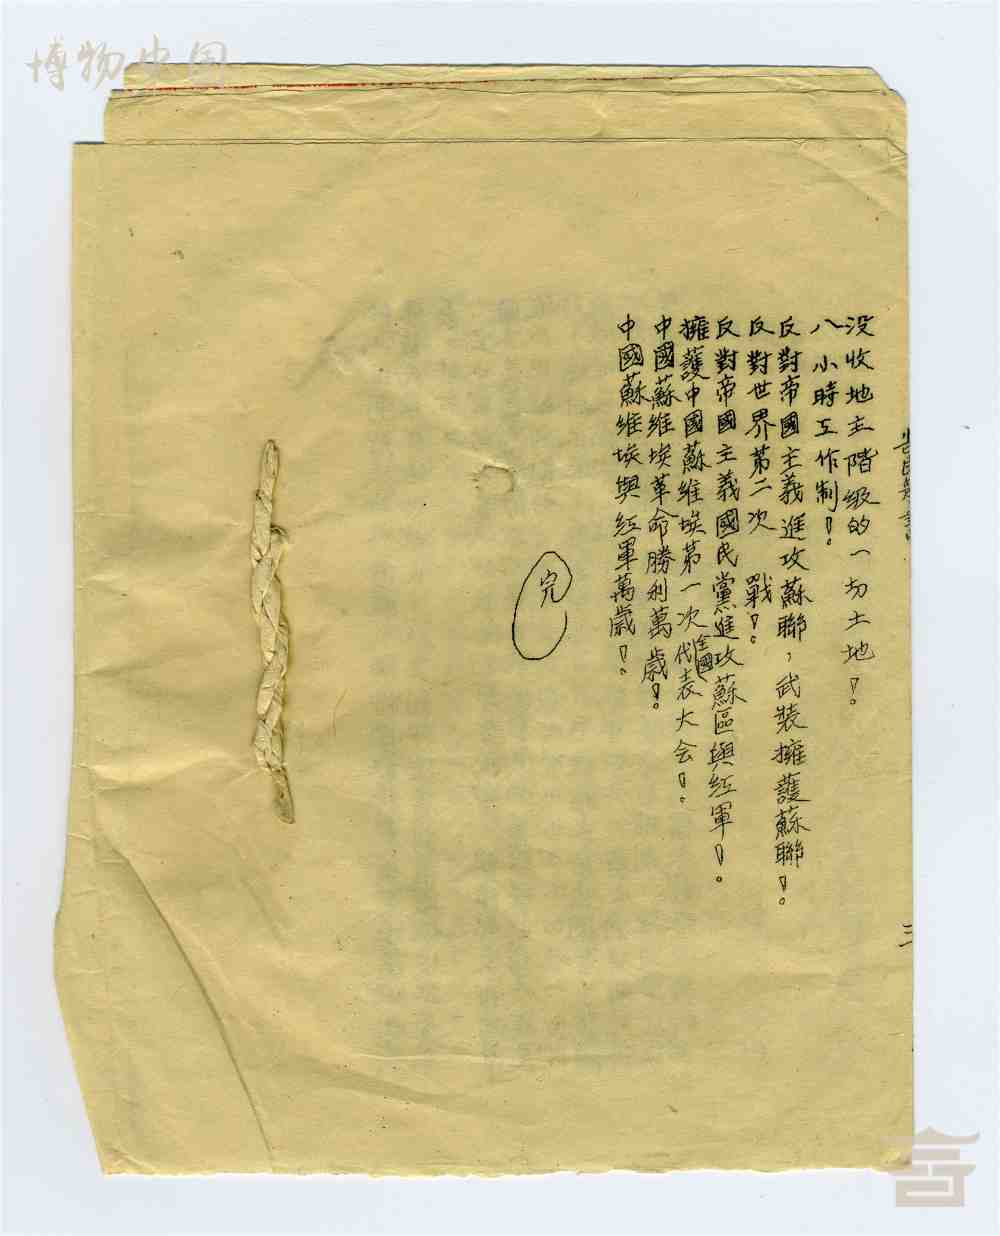 没收地主階級的一切土地！
八小時工作制！
反對帝國主義進攻蘇聯，武裝擁護蘇聯！
反對世界第二次 戰！
反對帝國主義國民黨進攻蘇區與红軍！
擁護中國蘇維埃第一次全國代表大会！
中國蘇維埃革命勝利萬歲！
中國蘇維埃與红軍萬歲！
完
三
博物中国